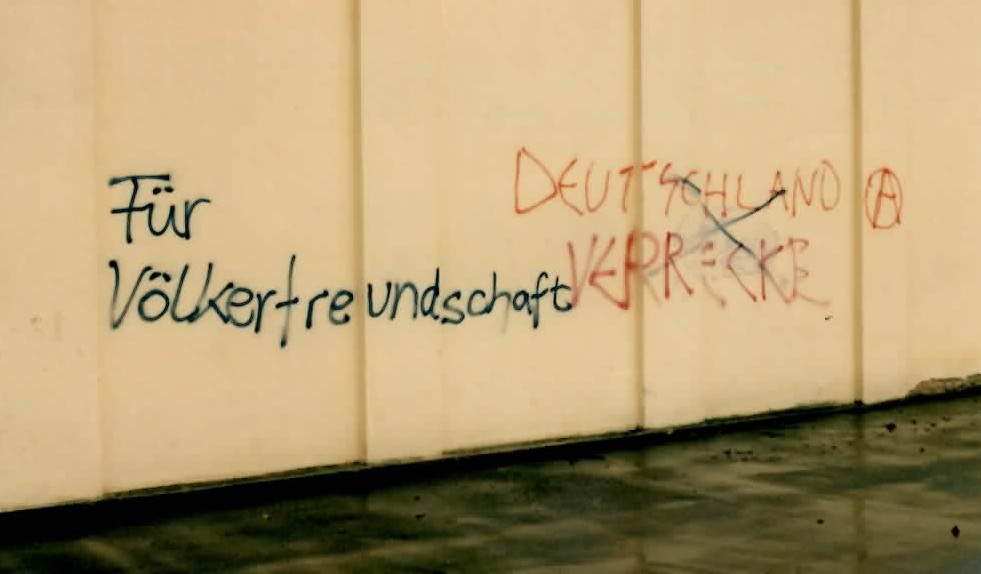 Für
Völkerfreundschaft
DEUTSCHLAND Ⓐ
VERRECKE